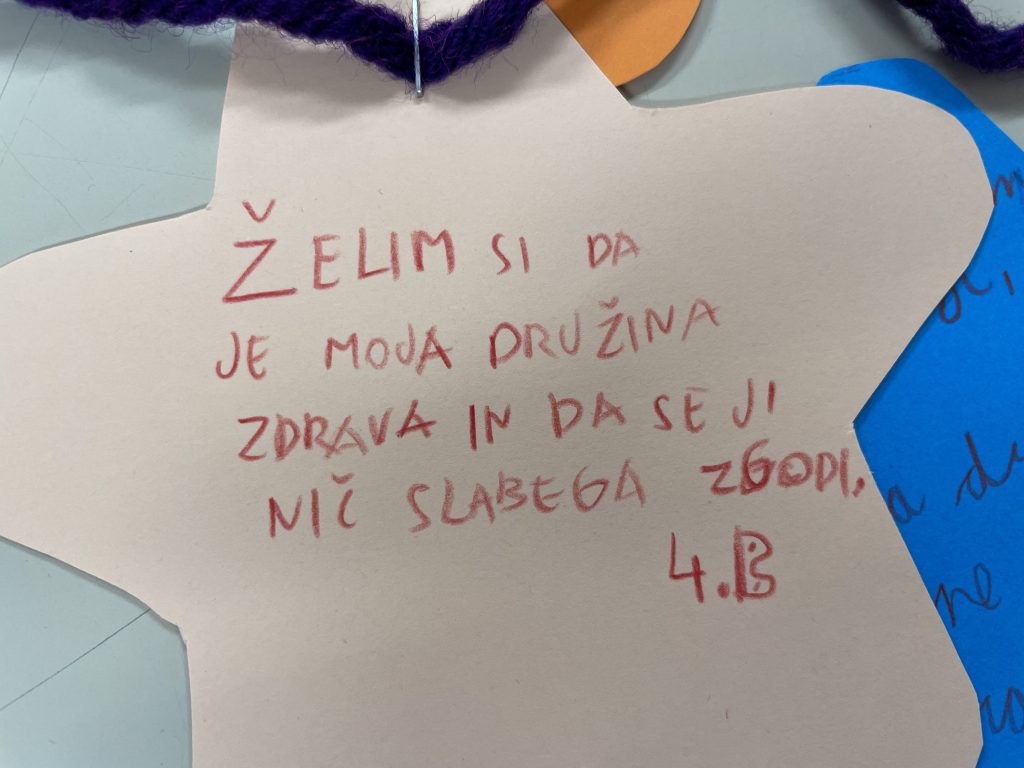 ŽELIM SI DA
JE MOJA DRUŽINA
ZDRAVA IN DA SE JI
NIČ SLABEGA ZGODI.
4.B
a
ne